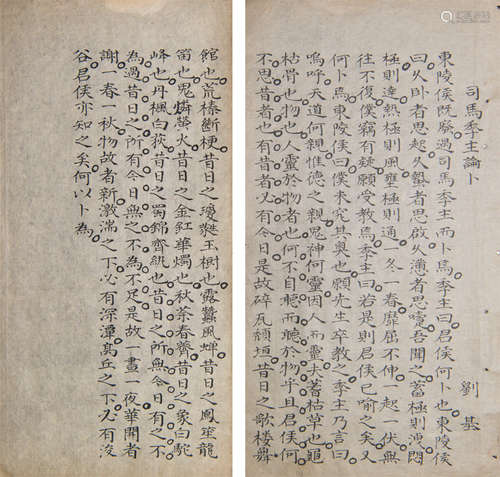 司馬季主論卜
劉基
東陵侯既廢過司馬季主而卜焉季主曰君侯何卜也東陵侯
曰久臥者思起久蟄者思啟久懣者思嚏吾聞之蓄極則洩悶
極則達熱極則風壅極則通一冬一春靡屈不伸一起一伏無
往不復僕竊有疑願受教焉季主曰若是則君侯已喻之矣又
何卜焉東陵侯曰僕未究其奧也願先生卒教之季主乃言曰
嗚呼天道何親惟德之親鬼神何靈因人而靈夫蓍枯草也龜
枯骨也物也人靈於物者也何不自聽而聽於物乎且君侯何
不思昔者也有昔者必有今日是故碎瓦頹垣昔日之歌樓舞
館也荒榛斷梗昔日之瓊蕤玉樹也露蠶風蟬昔日之鳳笙龍
笛也鬼燐螢火昔日之金釭華燭也秋荼春薺昔日之象白駝
峰也丹楓白荻昔日之蜀錦齊紈也昔日之所無今日有之不
為過昔日之所有今日無之不為不足是故一晝一夜華開者
謝一春一秋物故者新激湍之下必有深潭高丘之下必有浚
谷君侯亦知之矣何以卜為